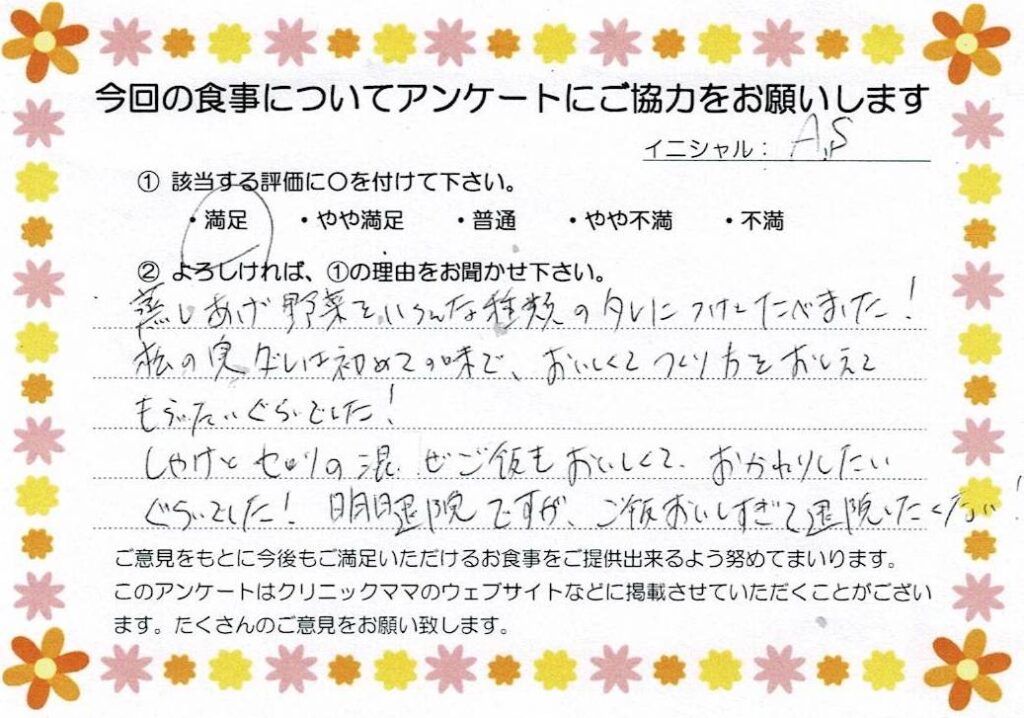 今回の食事についてアンケートにご協力をお願いします
イニシャル： A.S
① 該当する評価に〇を付けて下さい。
・満足 ・やや満足 ・普通 ・やや不満 ・不満
② よろしければ、①の理由をお聞かせ下さい。
蒸しあげ野菜をいろんな種類のタレにつけてたべました！
松の実ダレは初めての味で、おいしくてつくり方をおしえて
もらいたいぐらいでした！
しゃけとセロリの混ぜご飯もおいしくて、おかわりしたい
ぐらいでした！ 明日退院ですが、ご飯おいしすぎて退院したくない！
ご意見をもとに今後もご満足いただけるお食事をご提供出来るよう努めてまいります。
このアンケートはクリニックママのウェブサイトなどに掲載させていただくことがござい
ます。たくさんのご意見をお願い致します。